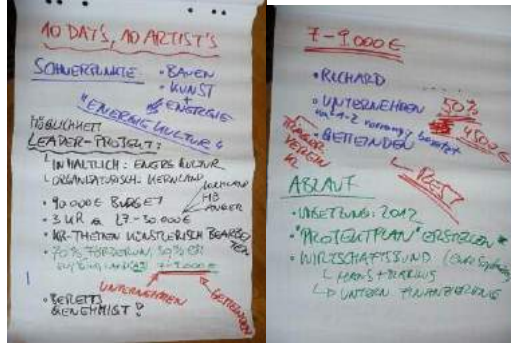 10 DAYS, 10 ARTIST'S
SCHWERPUNKTE
• BAUEN
• KUNST
+
ENERGIE
"ENERGIE KULTUR"
MÖGLICHKEIT
LEADER-PROJEKT:
INHALTLICH: ENERG. KULTUR
ORGANISATORISCH: KERNLAND
KERNLAND
MB
ANGER
• 90.000€ BUDGET
• 3 KR à 27-30.000€
• KR-THEMEN KÜNSTLERISCH BEARBEI
TEN
• 70% FÖRDERUNG, 30% ER
7-9.000€
UNTERNEHMEN
GEMEINDEN
• BEREITS
GENEHMIGT?
7-9.000€
• RICHARD
• UNTERNEHMEN 50%
4500€
• GEMEINDEN
TRÄGER
VEREIN
REST
ABLAUF
• UMSETZUNG: 2012
• "PROJEKTPLAN" ERSTELLEN
• WIRTSCHAFTSBUND
HANS + MARKUS
UNTERN. FINANZIERUNG